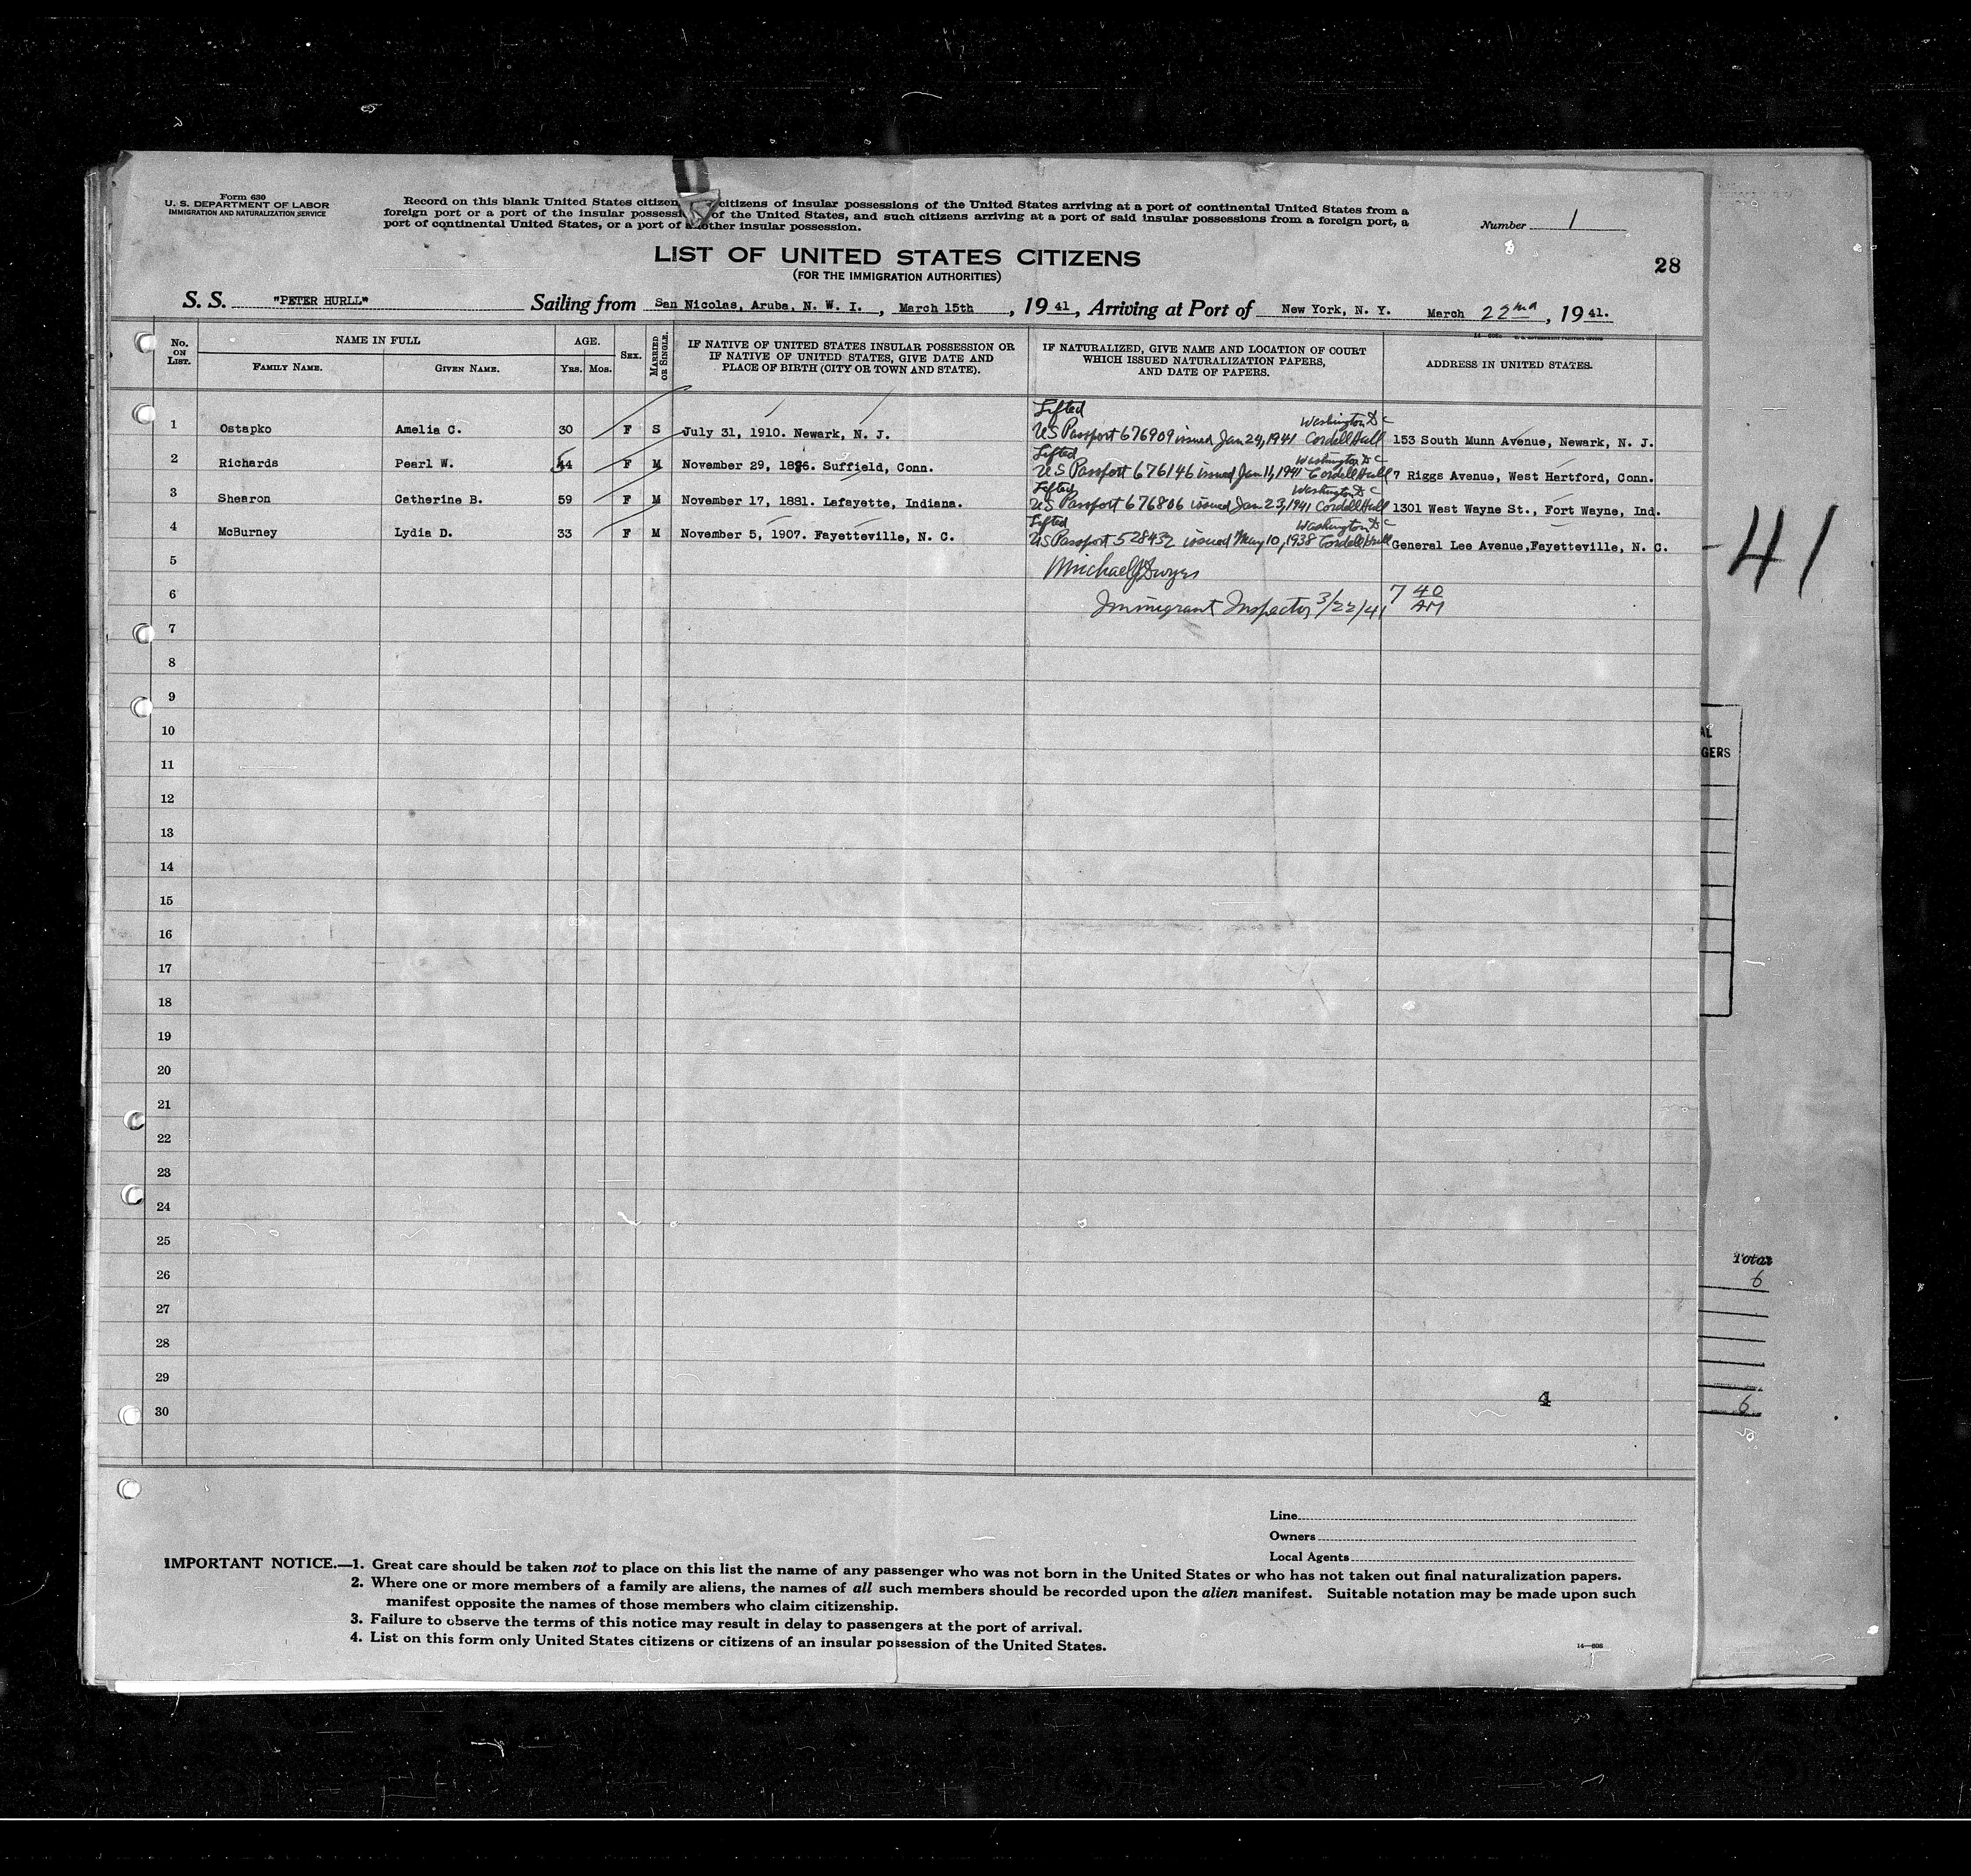 Form 630
U. S. DEPARTMENT OF LABOR
IMMIGRATION AND NATURALIZATION SERVICE
Record on this blank United States citizen citizens of insular possessions of the United States arriving at a port of continental United States from a
foreign port or a port of the insular possessi of the United States, and such citizens arriving at a port of said insular possessions from a foreign port, a
port of continental United States, or a port of another insular possession.
Number 1
LIST OF UNITED STATES CITIZENS
(FOR THE IMMIGRATION AUTHORITIES)
28
S. S. "PETER HURLL" Sailing from San Nicolas, Aruba, N. W. I., March 15th, 19 41, Arriving at Port of New York, N. Y. March 22nd, 19 41.
No. ON LIST.
NAME IN FULL
FAMILY NAME. GIVEN NAME.
AGE.
Yrs. Mos.
SEX.
MARRIED OR SINGLE.
IF NATIVE OF UNITED STATES INSULAR POSSESSION OR
IF NATIVE OF UNITED STATES, GIVE DATE AND
PLACE OF BIRTH (CITY OR TOWN AND STATE).
IF NATURALIZED, GIVE NAME AND LOCATION OF COURT
WHICH ISSUED NATURALIZATION PAPERS,
AND DATE OF PAPERS.
ADDRESS IN UNITED STATES.
Lifted Washington DC
1 Ostapko Amelia C. 30 F S July 31, 1910. Newark, N. J. US Passport 676909 issued Jan 24, 1941 Cordell Hull 153 South Munn Avenue, Newark, N. J.
Lifted Washington DC
2 Richards Pearl W. 54 F M November 29, 1886. Suffield, Conn. US Passport 676146 issued Jan 11, 1941 Cordell Hull 7 Riggs Avenue, West Hartford, Conn.
Lifted Washington DC
3 Shearon Catherine B. 59 F M November 17, 1881. Lafayette, Indiana. US Passport 676806 issued Jan 23, 1941 Cordell Hull 1301 West Wayne St., Fort Wayne, Ind.
Lifted Washington DC
4 McBurney Lydia D. 33 F M November 5, 1907. Fayetteville, N. C. US Passport 528432 issued May 10, 1938 Cordell Hull General Lee Avenue, Fayetteville, N. C.
5 Michael J Dwyer
6 Immigrant Inspector 3/22/41 7 40 AM
7
8
9
10
11
12
13
14
15
16
17
18
19
20
21
22
23
24
25
26
27
28
29
30
4
-41
AL
GERS
Total
6
6
Line
Owners
Local Agents
IMPORTANT NOTICE.—1. Great care should be taken not to place on this list the name of any passenger who was not born in the United States or who has not taken out final naturalization papers.
2. Where one or more members of a family are aliens, the names of all such members should be recorded upon the alien manifest. Suitable notation may be made upon such
manifest opposite the names of those members who claim citizenship.
3. Failure to observe the terms of this notice may result in delay to passengers at the port of arrival.
4. List on this form only United States citizens or citizens of an insular possession of the United States.